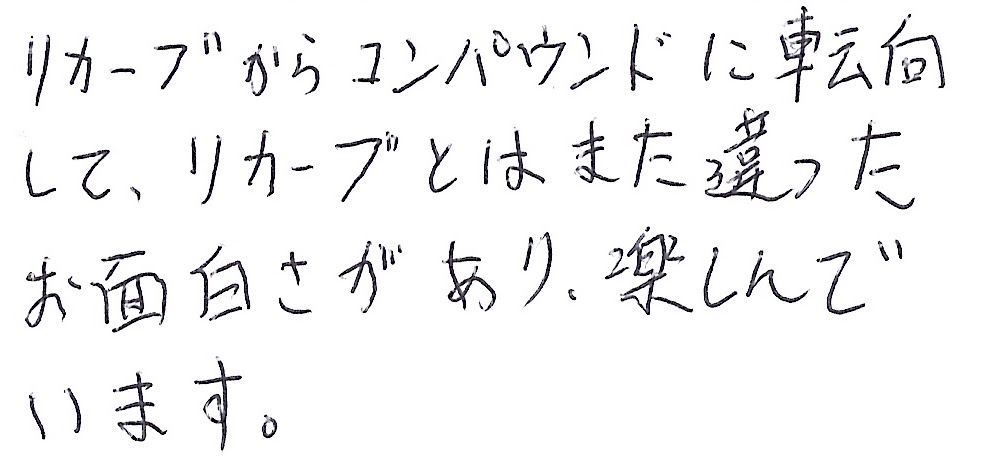 リカーブからコンパウンドに転向
して、リカーブとはまた違った
お面白さがあり、楽しんで
います。